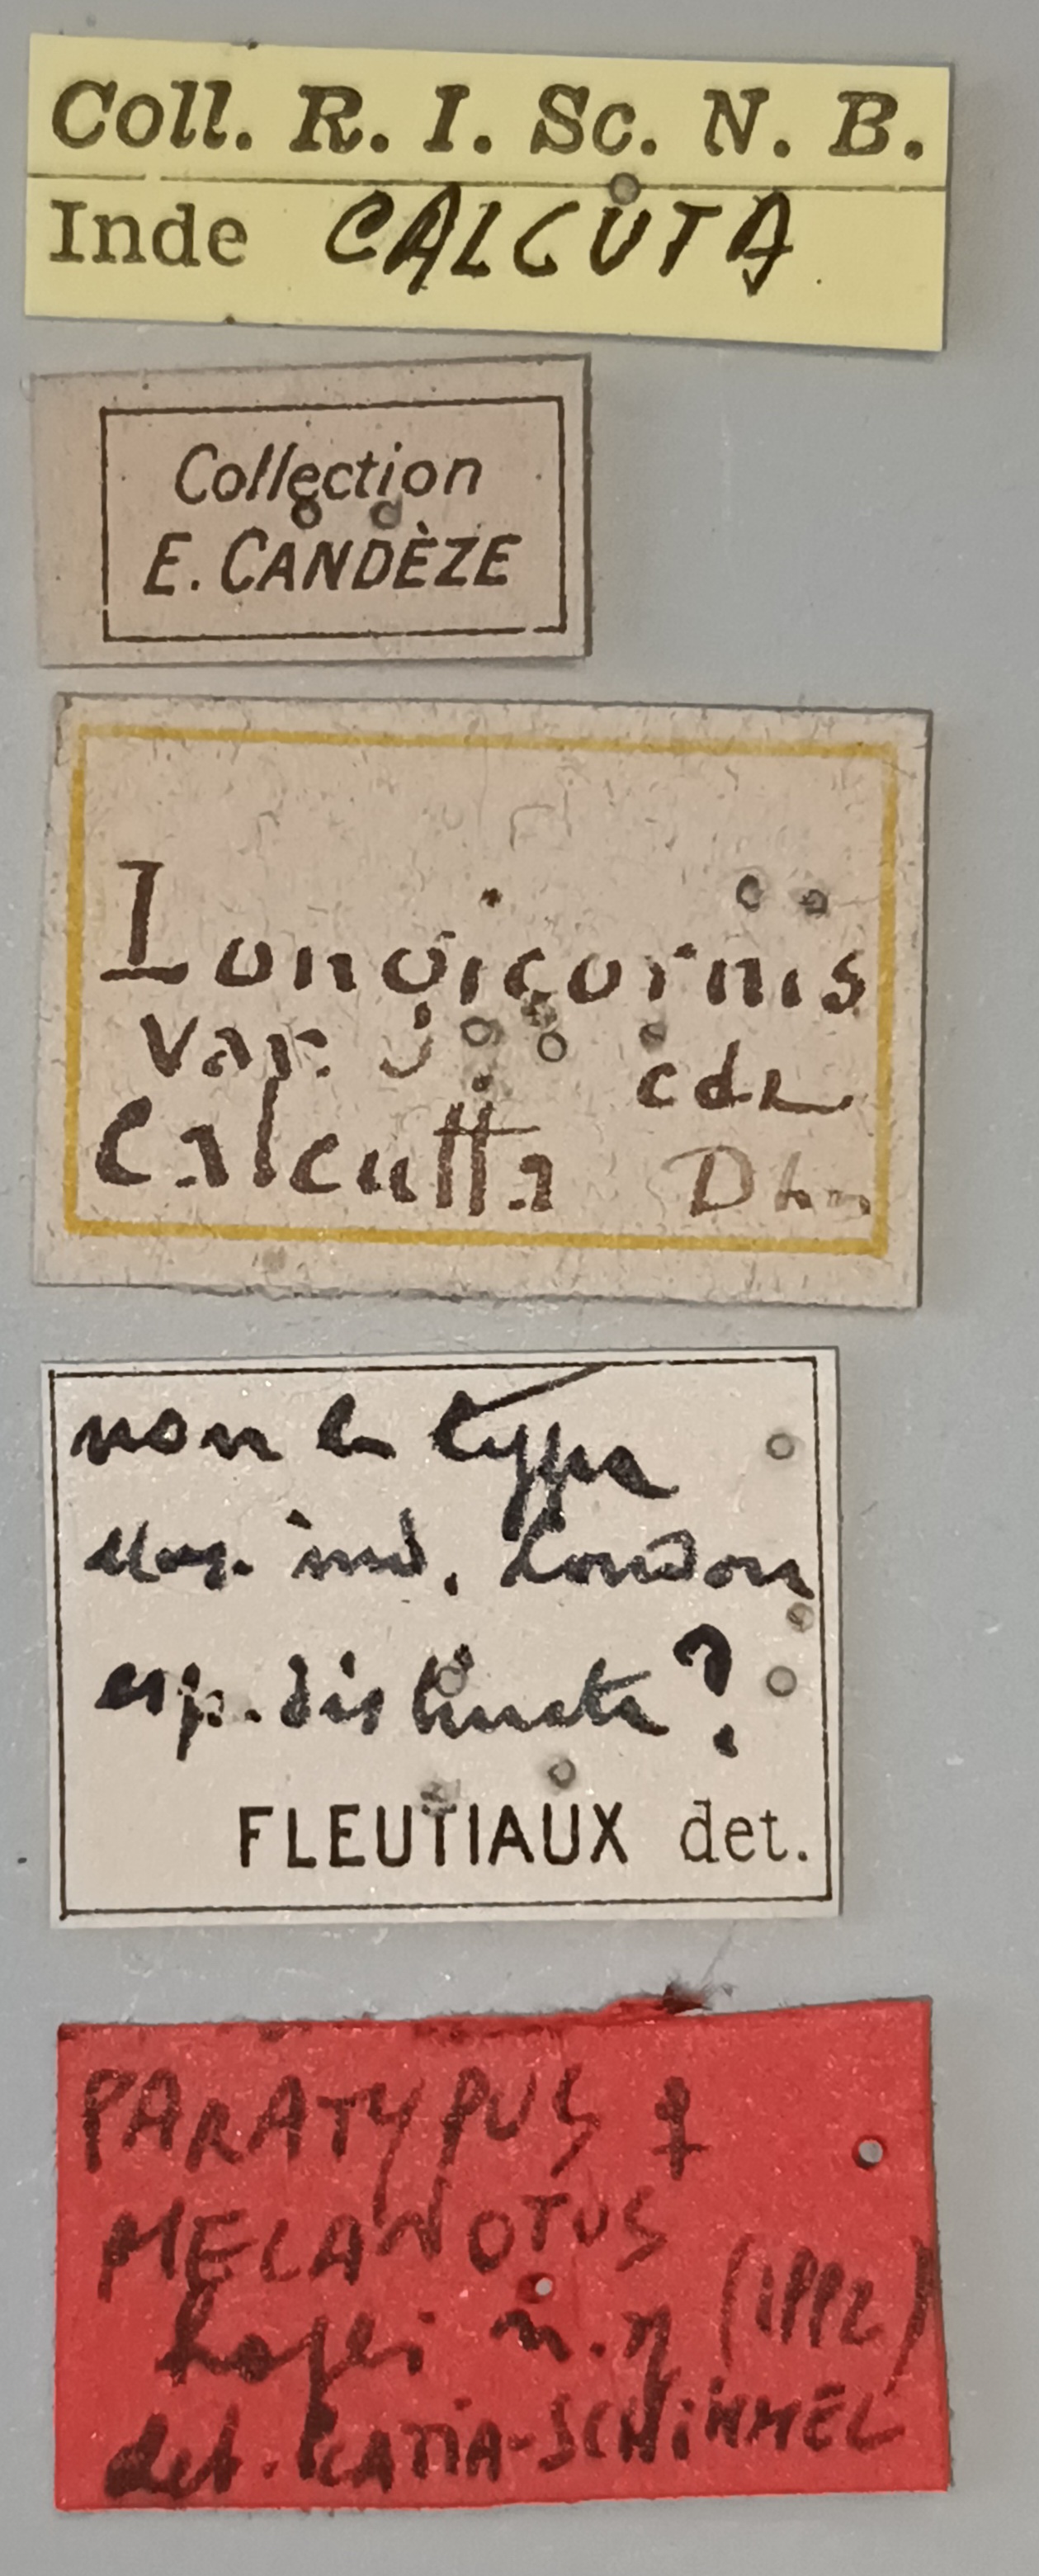 Coll. R. I. Sc. N. B.
Inde CALCUTA
Collection
E. CANDÈZE
Longicornis
var. j cdz
Calcutta Dhn
non le type
Mus. ind. London
esp. distincte?
FLEUTIAUX det.
PARATYPUS ♀
MELANOTUS
hopei n. (1992)
det. PLATIA-SCHIMMEL